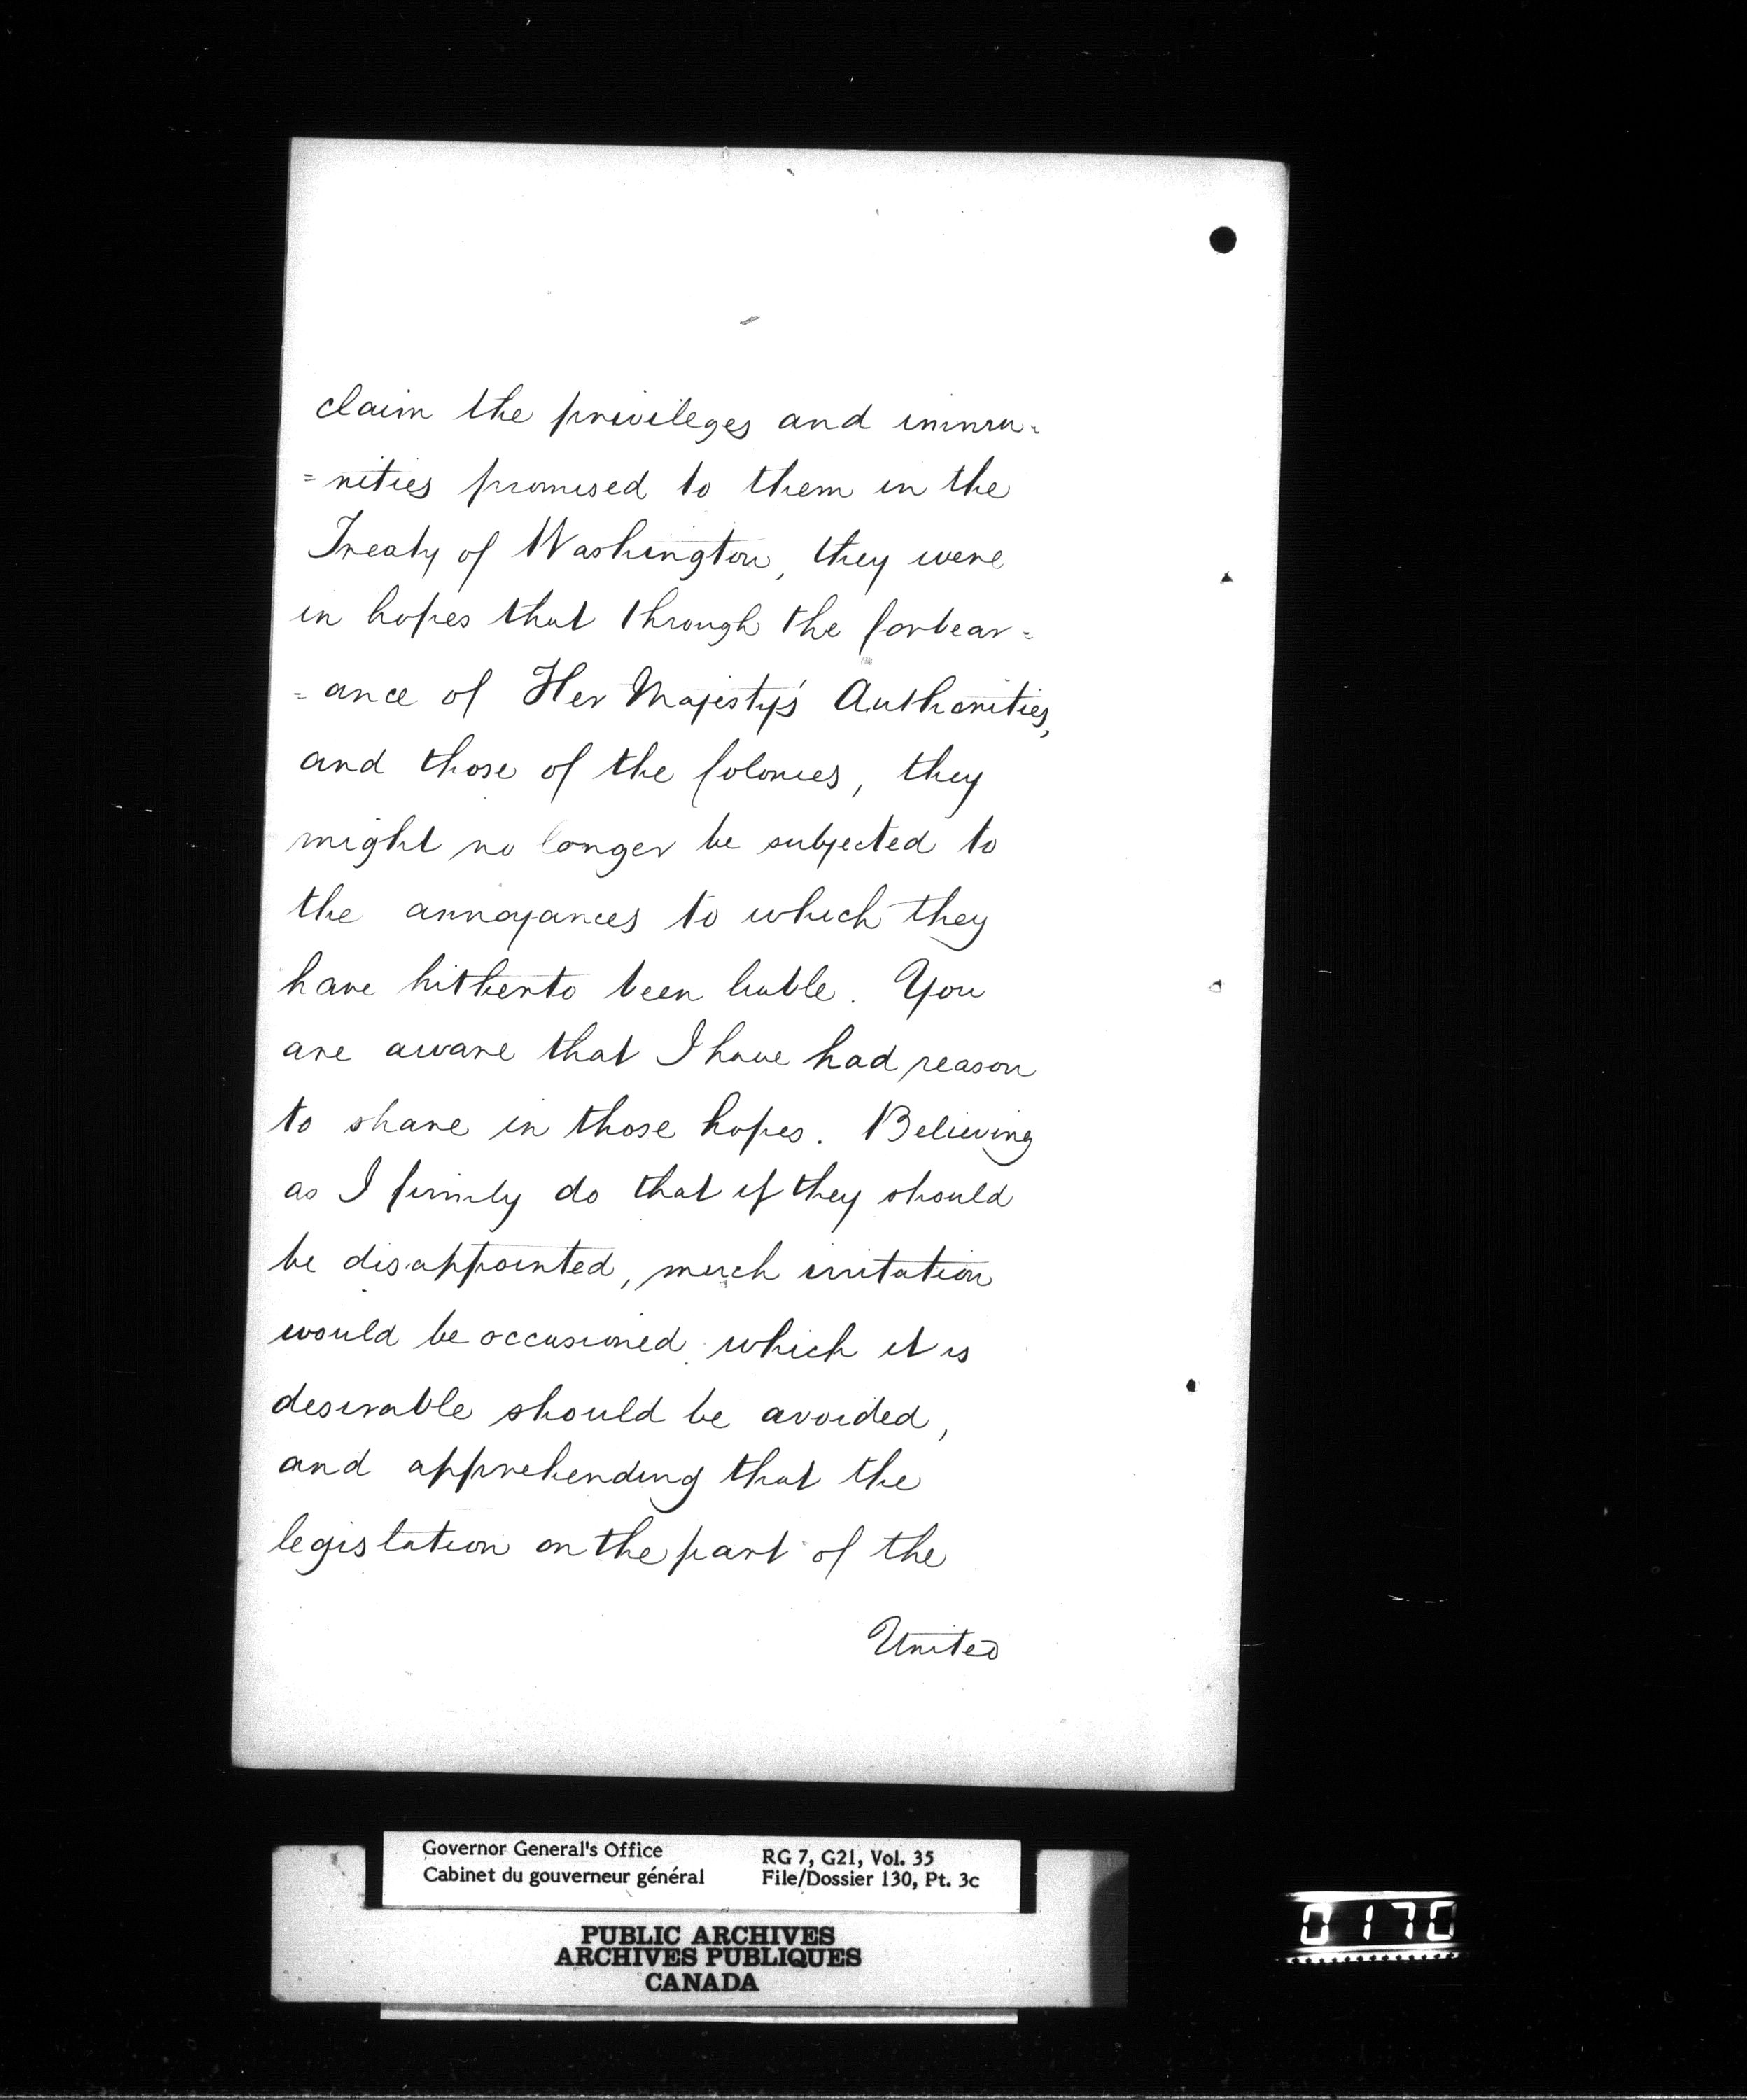 claim the privileges and immu=
=nities promised to them in the
Treaty of Washington, they were
in hopes that through the forbear=
=ance of Her Majesty's Authorities,
and those of the Colonies, they
might no longer be subjected to
the annoyances to which they
have hitherto been liable. You
are aware that I have had reason
to share in those hopes. Believing
as I firmly do that if they should
be disappointed, much irritation
would be occasioned which it is
desirable should be avoided,
and apprehending that the
legislation on the part of the
United
Governor General's Office
Cabinet du gouverneur général
RG 7, G21, Vol. 35
File/Dossier 130, Pt. 3c
PUBLIC ARCHIVES
ARCHIVES PUBLIQUES
CANADA
0170